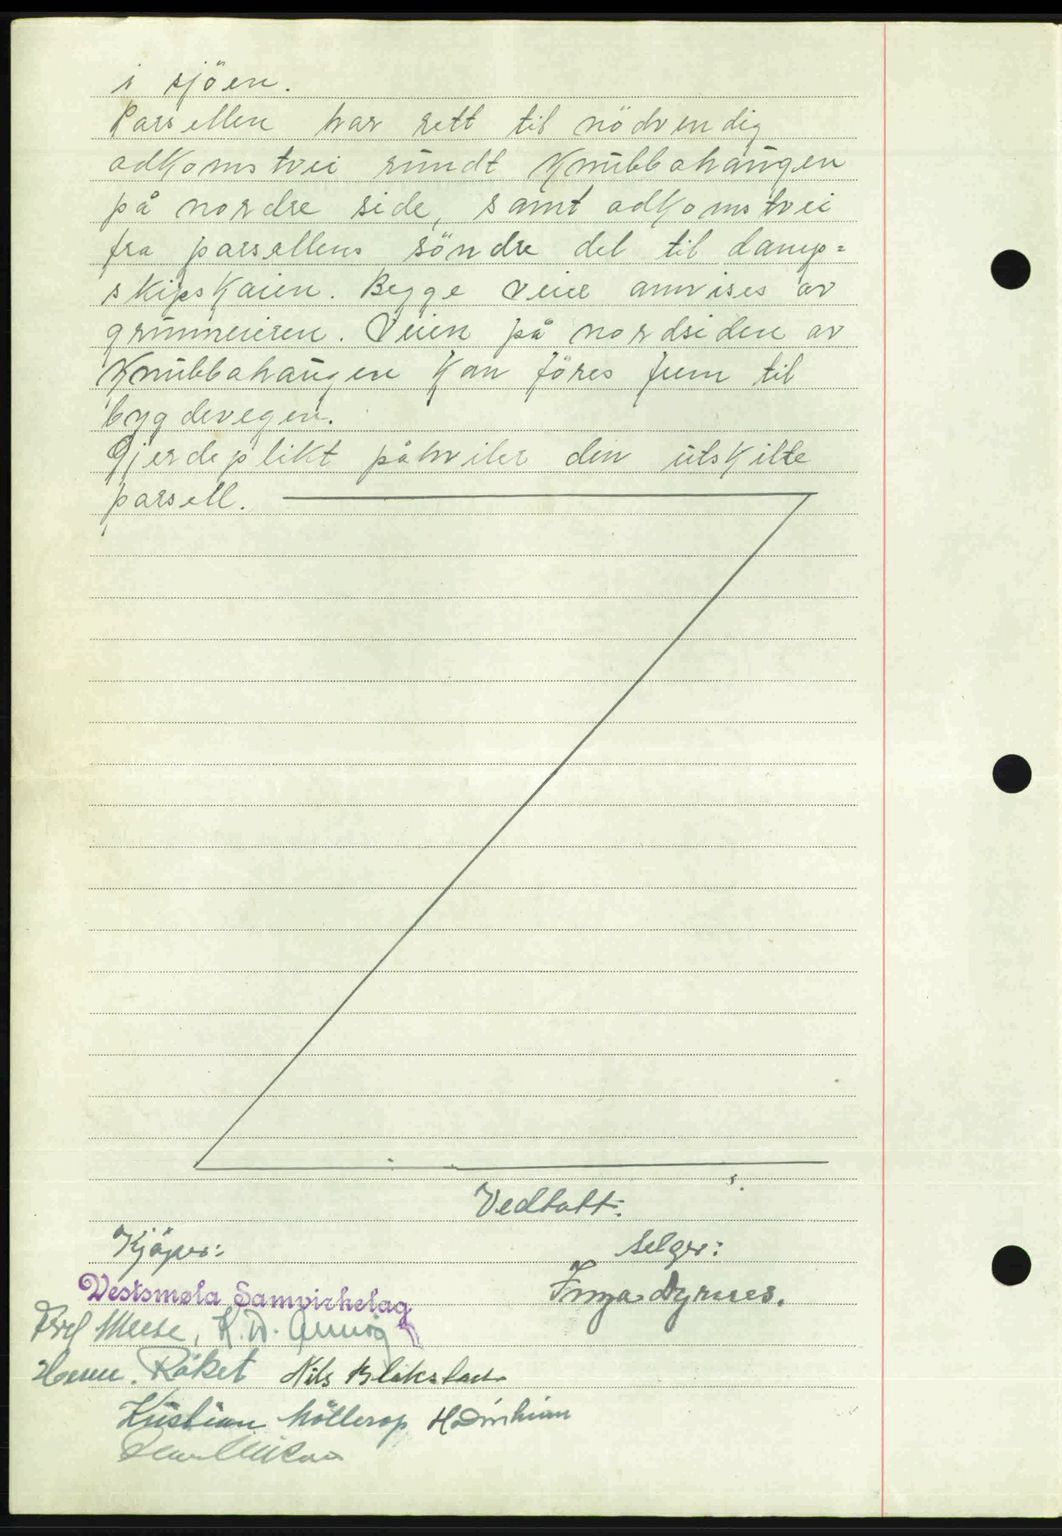 i sjöen.
Parsellen har rett til nödvendig
adkomstvei rundt Knubbahaugen
på nordre side, samt adkomstvei
fra parsellens söndre del til damp=
skipskaien. Begge veie anvises av
grunneieren. Veien på nordsiden av
Knubbahaugen kan föres frem til
bygdevegen.
Gjerdeplikt påhviler den utskilte
parsell.
Vedtatt:
Kjöper: Selger:
Vestsmøla Samvirkelag Inga Dyrnes.
K. A.
Röket Nils Blakstad
Kristian Möllerop